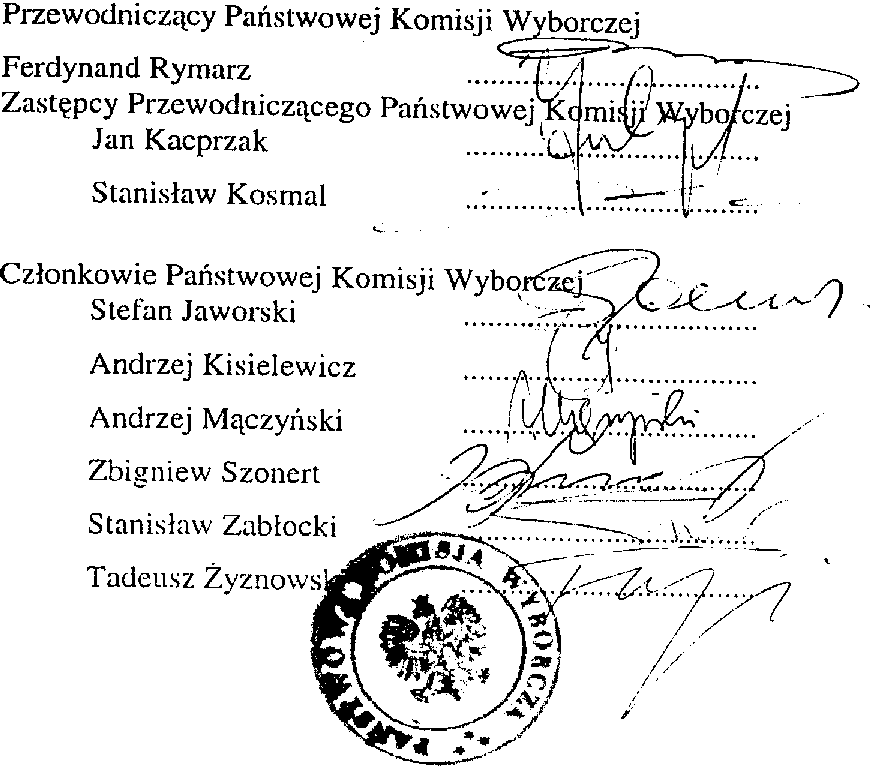 Przewodniczący Państwowej Komisji Wyborczej
Ferdynand Rymarz
Zastępcy Przewodniczącego Państwowej Komisji Wyborczej
Jan Kacprzak
Stanisław Kosmal
Członkowie Państwowej Komisji Wyborczej
Stefan Jaworski
Andrzej Kisielewicz
Andrzej Mączyński
Zbigniew Szonert
Stanisław Zabłocki
Tadeusz Żyznowsk
PAŃSTWOWA KOMISJA WYBORCZA